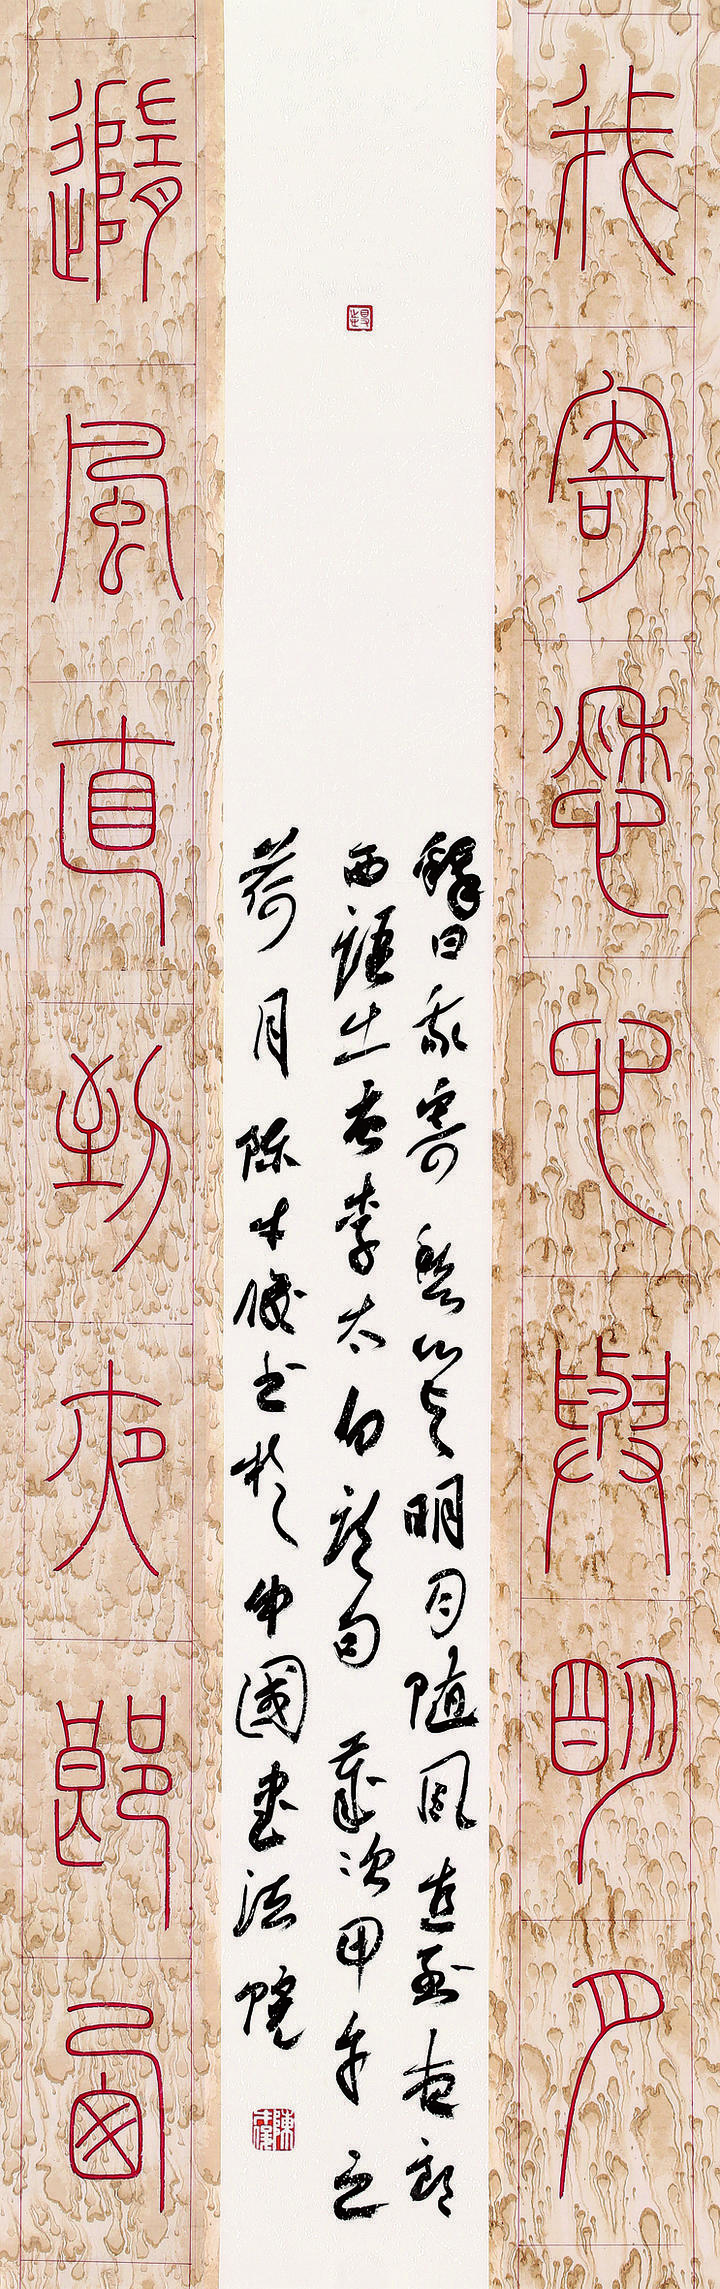 我寄愁心與明月
隨風直到夜郎西
釋曰我寄愁心与明月随風直到夜郎
西語出唐李太白詩句 歲次甲午之
荷月陳書於中國書法院